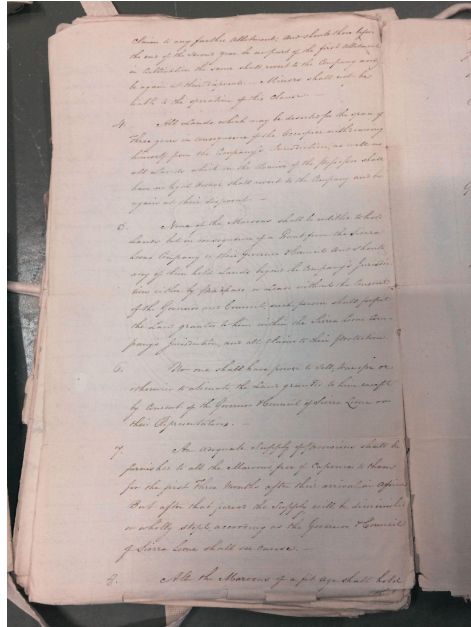 Claim to any further Allotment, and should there before
the end of the second year be no part of the first Allotment
in Cultivation the same shall revert to the Company and
be again at their disposal. — Minors shall not be
to the operation of this Clause
4. All Lands which may be deserted for the space of
Three years in consequence of the Occupier withdrawing
himself from the Company's Jurisdiction, as well as
all Lands which in the of the Possessor shall
have no Owner shall revert to the Company and be
again at their disposal. —
5. None of the Maroons shall be entitled to hold
Lands but in consequence of a Grant from the Sierra
Leone Company or their Governor & Council And should
any of them hold Lands beyond the Company's Jurisdic
tion either by Purchase or Lease without the Consent
of the Governor and Council, such person shall forfeit
the Land granted to him within the Sierra Leone Com
pany's Jurisdiction, and all claim to their Protection
6. No one shall have power to sell, transfer or
otherwise to alienate the Land granted to him except
by Consent of the Governor & Council of Sierra Leone or
their Representatives. —
7. An adequate Supply of Provisions shall be
furnished to all the Maroons free of Expence to them
for the first Three Months after their arrival in Africa
But after that period the Supply will be diminished
or wholly stopt according as the Governor & Council
of Sierra Leone shall see cause. —
8. All the Maroons of a fit age shall hold